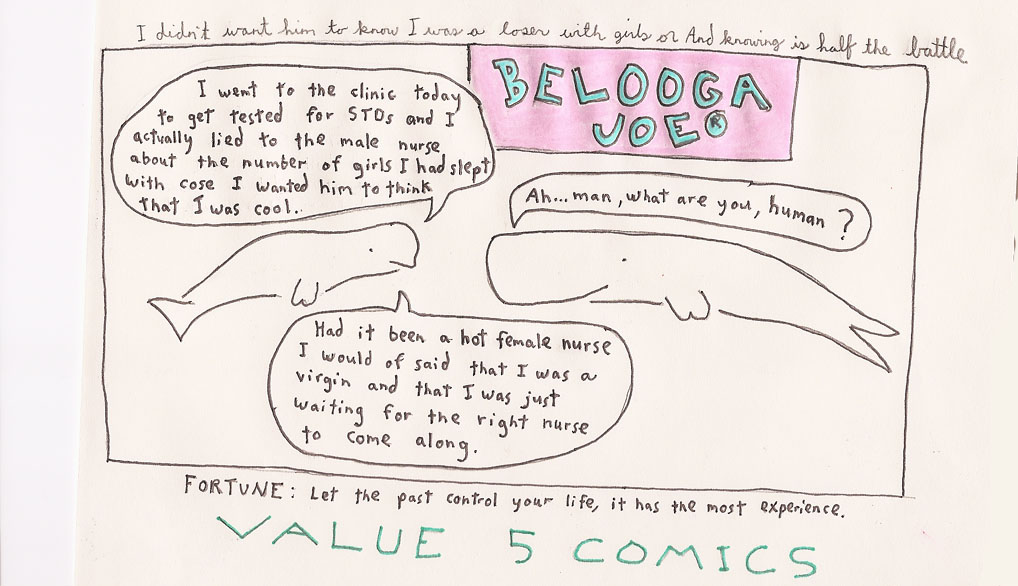 I didn't want him to know I was a loser with girls or And knowing is half the battle
BELOOGA
JOE®
I went to the clinic today
to get tested for STDs and I
actually lied to the male nurse
about the number of girls I had slept
with cose I wanted him to think
that I was cool..
Ah...man, what are you, human?
Had it been a hot female nurse
I would of said that I was a
virgin and that I was just
waiting for the right nurse
to come along.
FORTUNE: Let the past control your life, it has the most experience.
VALUE 5 COMICS